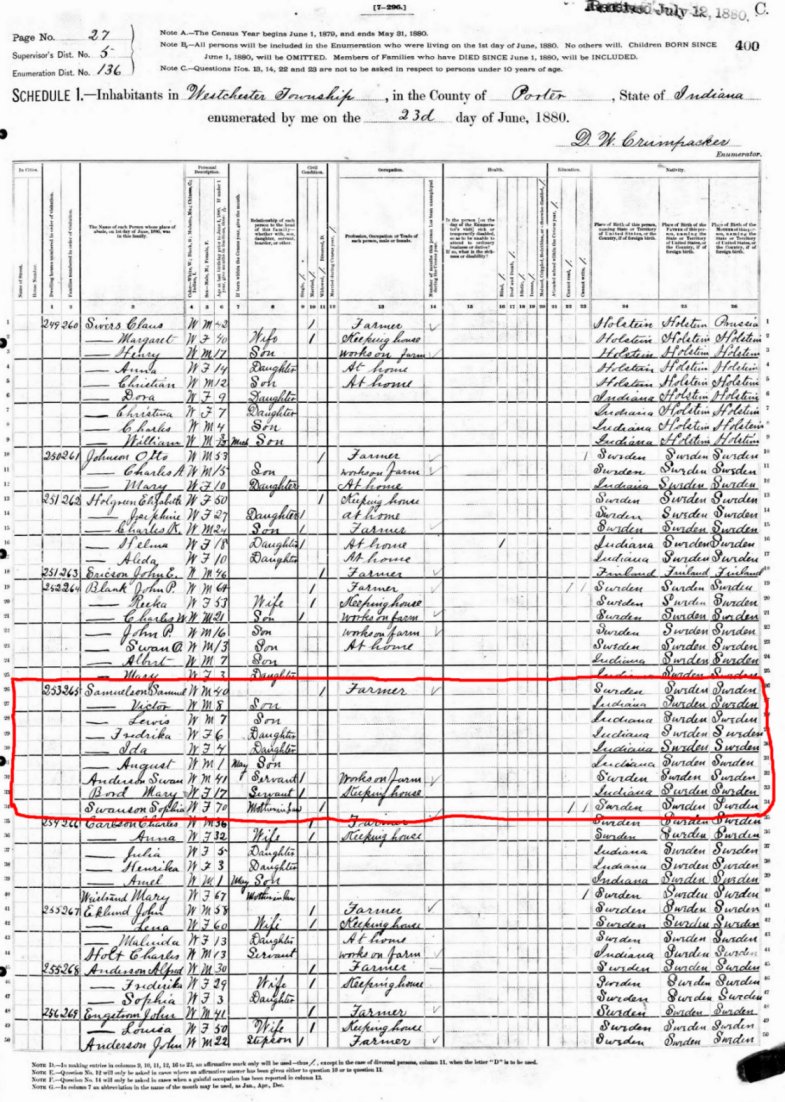 [7-296.]
Received July 12, 1880. C.
Page No. 27
Supervisor's Dist. No. 5
Enumeration Dist. No. 136
Note A.—The Census Year begins June 1, 1879, and ends May 31, 1880.
Note B.—All persons will be included in the Enumeration who were living on the 1st day of June, 1880. No others will. Children BORN SINCE
June 1, 1880, will be OMITTED. Members of Families who have DIED SINCE June 1, 1880, will be INCLUDED.
Note C.—Questions Nos. 13, 14, 22 and 23 are not to be asked in respect to persons under 10 years of age.
400
SCHEDULE 1.—Inhabitants in Westchester Township, in the County of Porter, State of Indiana
enumerated by me on the 23d day of June, 1880.
D. W. Crumpacker
Enumerator.
In Cities. Personal Description. Civil Condition. Occupation. Health. Education. Nativity.
The Name of each Person whose place of abode, on 1st day of June, 1880, was in this family.
Relationship of each person to the head of this family—whether wife, son, daughter, servant, boarder, or other.
Profession, Occupation or Trade of each person, male or female.
1 2 3 4 5 6 7 8 9 10 11 12 13 14 15 16 17 18 19 20 21 22 23 24 25 26
1 249 260 Sivers Claus W M 42 / Farmer Holstein Holstein Prussia 1
2 — Margaret W F 40 Wife / Keeping house Holstein Holstein Holstein
3 — Henry W M 17 Son works on farm Holstein Holstein Holstein
4 — Anna W F 14 Daughter At home Holstein Holstein Holstein
5 — Christian W M 12 Son At home Holstein Holstein Holstein
6 — Dora W F 9 Daughter Indiana Holstein Holstein
7 — Christina W F 7 Daughter Indiana Holstein Holstein
8 — Charles W M 4 Son Indiana Holstein Holstein
9 — William W M Son Indiana Holstein Holstein
10 250 261 Johnson Otto W M 53 / Farmer / Sweden Sweden Sweden
11 — Charles A W M 15 Son works on farm Sweden Sweden Sweden
12 — Mary W F 10 Daughter At home Indiana Sweden Sweden
13 251 262 Holgreen Elizabeth W F 50 / Keeping house Sweden Sweden Sweden
14 — Josephine W F 27 Daughter / at home Sweden Sweden Sweden
15 — Charles R. W M 24 Son / Farmer Sweden Sweden Sweden
16 — Helma W F 18 Daughter / At home / Indiana Sweden Sweden
17 — Aleda W F 10 Daughter At home Indiana Sweden Sweden
18 251 263 Ericson John E. W M 46 / Farmer Finland Finland Finland
19 252 264 Blank John P. W M 64 / Farmer / / Sweden Sweden Sweden
20 — Reeka W F 53 Wife / Keeping house Sweden Sweden Sweden
21 — Charles W W M 21 Son / works on farm Sweden Sweden Sweden
22 — John P. W M 16 Son works on farm Sweden Sweden Sweden
23 — Swan O. W M 13 Son At home Sweden Sweden Sweden
24 — Albert W M 7 Son Indiana Sweden Sweden
25 — Mary W F 3 Daughter Indiana Sweden Sweden
26 253 265 Samuelson Samuel W M 40 / Farmer Sweden Sweden Sweden
27 — Victor W M 8 Son Indiana Sweden Sweden
28 — Lewis W M 7 Son Indiana Sweden Sweden
29 — Fredrika W F 6 Daughter Indiana Sweden Sweden
30 — Ida W F 4 Daughter Indiana Sweden Sweden
31 — August W M 1 May Son Indiana Sweden Sweden
32 Anderson Swan W M 41 Servant / Works on farm Sweden Sweden Sweden
33 Bord Mary W F 17 Servant / Keeping house Indiana Sweden Sweden
34 Swanson Sophia W F 70 Mother in law / / / Sweden Sweden Sweden
35 254 266 Carlson Charles W M 36 / Farmer Sweden Sweden Sweden
36 — Anna W F 32 Wife / Keeping house Sweden Sweden Sweden
37 — Julia W F 5 Daughter Indiana Sweden Sweden
38 — Henrika W F 3 Daughter Indiana Sweden Sweden
39 — Amel W M 1 May Son Indiana Sweden Sweden
40 Mary W F 67 Mother in law / Sweden Sweden Sweden
41 255 267 Eklund John W M 58 / Farmer Sweden Sweden Sweden
42 — Lena W F 60 Wife / Keeping house Sweden Sweden Sweden
43 — Malinda W F 13 Daughter At home Sweden Sweden Sweden
44 Holt Charles W M 13 Servant works on farm Indiana Sweden Sweden
45 255 268 Anderson Alfred W M 30 / Farmer Sweden Sweden Sweden
46 — Fredrika W F 29 Wife / Keeping house Sweden Sweden Sweden
47 — Sophia W F 3 Daughter Sweden Sweden Sweden
48 256 269 Engstrom John W M 41 / Farmer Sweden Sweden Sweden
49 — Louisa W F 50 Wife / Keeping house Sweden Sweden Sweden
50 Anderson John W M 22 Stepson / Farmer Sweden Sweden Sweden
Note D.—In making entries in columns 9, 10, 11, 12, 16 to 23, an affirmative mark only will be used—thus /, except in the case of divorced persons, column 11, when the letter "D" is to be used.
Note E.—Question No. 12 will only be asked in cases where an affirmative answer has been given either to question 10 or to question 11.
Note F.—Question No. 14 will only be asked in cases when a gainful occupation has been reported in column 13.
Note G.—In column 7 an abbreviation in the name of the month may be used, as Jan., Apr., Dec.